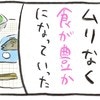 ムリなく
食が豊か
になっていった